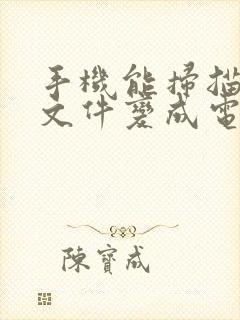 手機能掃描
文件變成電
陳寶成